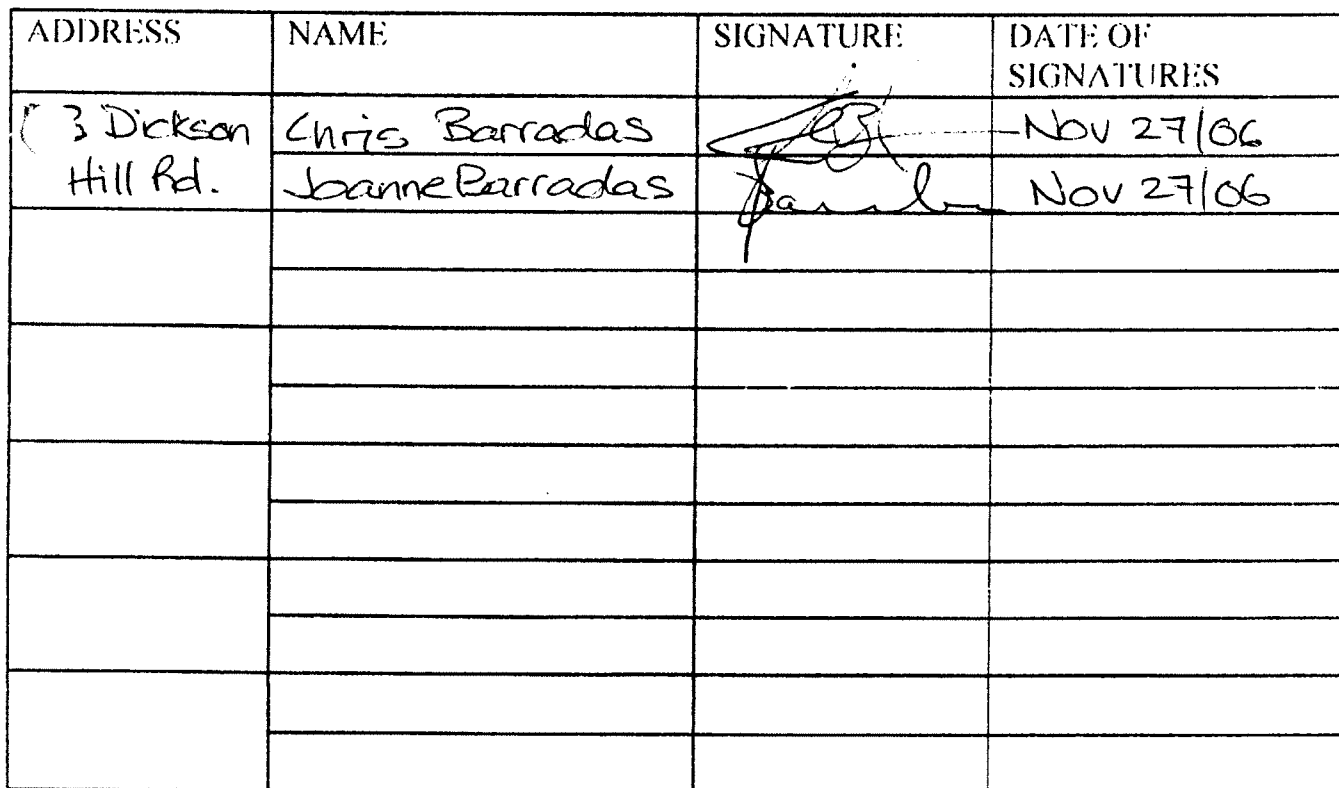 ADDRESS NAME SIGNATURE DATE OF
SIGNATURES
3 Dickson Chris Barradas Nov 27/06
Hill Rd. Joanne Barradas Nov 27/06